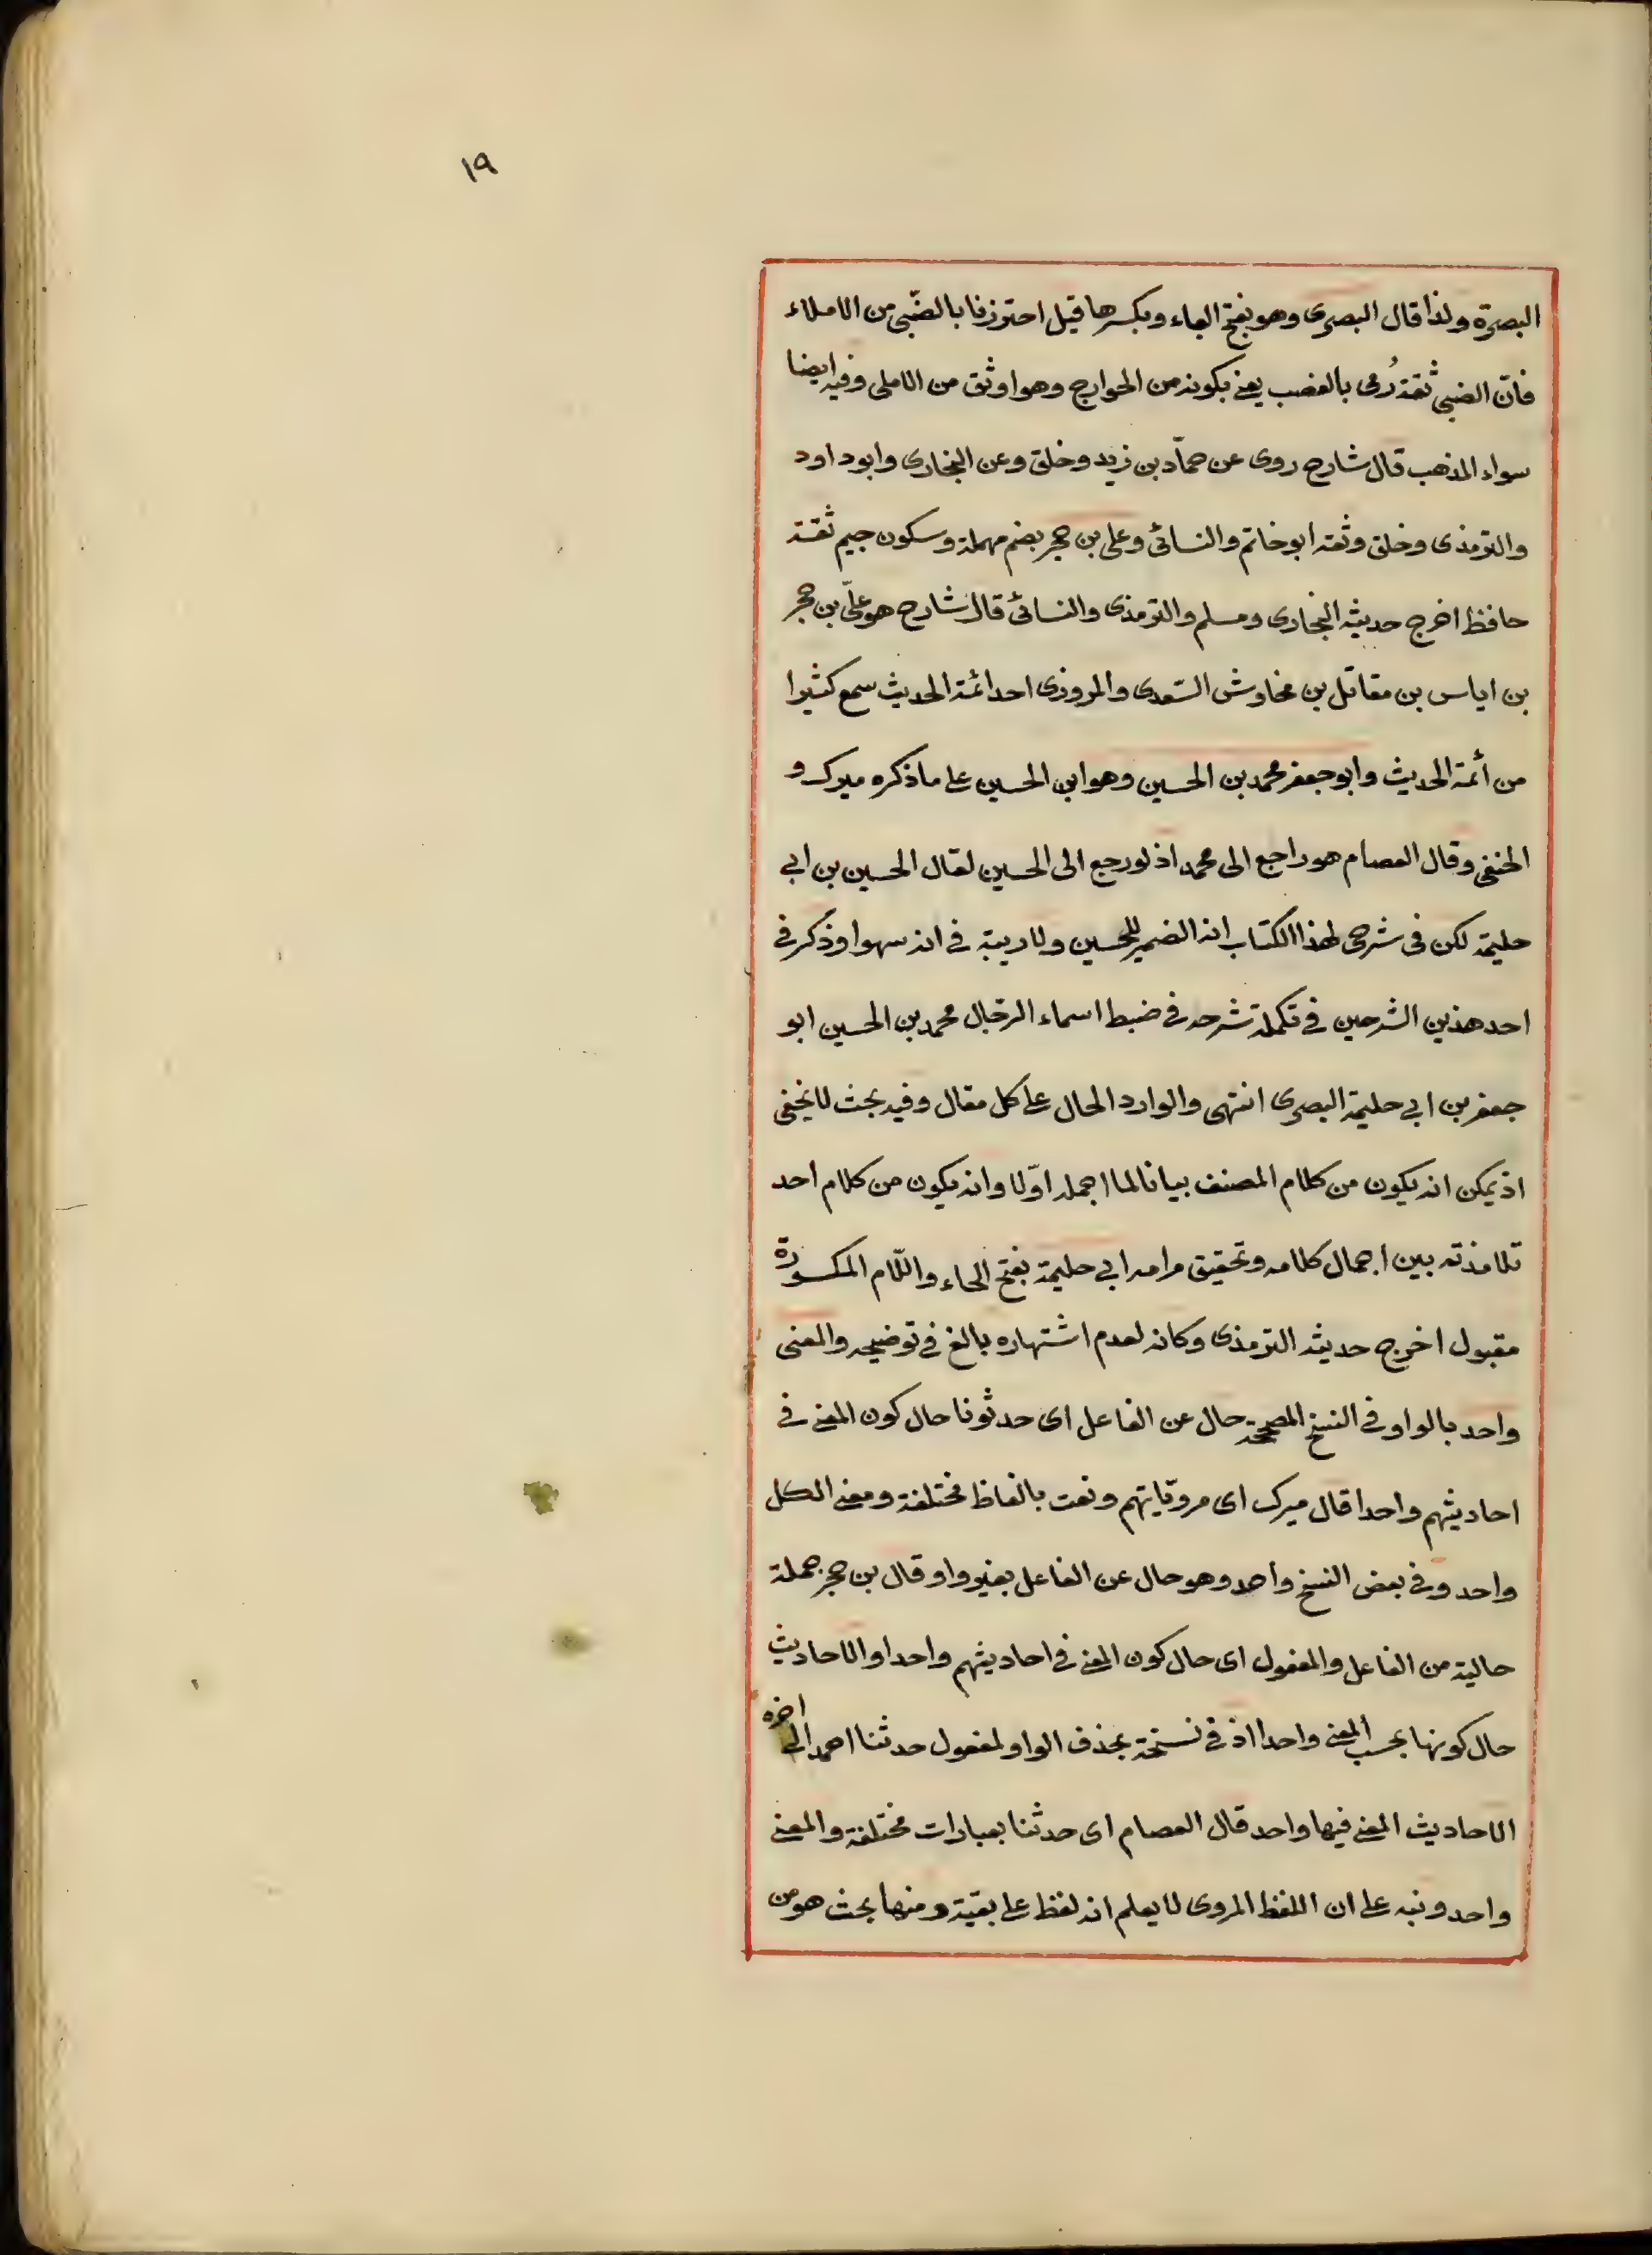 ١٩
البصرة ولذا قال البصرى وهو بفتح الباء وبكسرها قيل احترزنا بالضبّى من الاملاء
فانّ الضبى ثقة رُمى بالغضب يعنى بكونه من الخوارج وهو اوثق من الاملى وفيه ايضا
سواء المذهب قال شارح روى عن حمّاد بن زيد وخلق وعن البخارى وابو داود
والترمذى وخلق وثقه ابو خاتم والنسائى وعلى بن حجر بضم مهملة وسكون جيم ثقة
حافظ اخرج حديثه البخارى ومسلم والترمذى والنسائى قال شارح هو علىّ بن حجر
بن اياس بن مقاتل بن مخاوش السّعدى والمروزى احد ائمة الحديث سمع كثيرا
من أئمة الحديث وابو جعفر محمد بن الحسين وهو ابن الحسين على ما ذكره ميرك و
الحنفى وقال العصام هو راجع الى محمد اذ لو رجع الى الحسين لقال الحسين بن ابى
حليمة لكن فى شرحى لهذا الكتاب انه الضمير للحسين ولا ريبة فى انه سهوا وذكر فى
احد هذين الشرحين فى تكملة شرحه فى ضبط اسماء الرجال محمد بن الحسين ابو
جعفر بن ابى حليمة البصرى انتهى والوارد الحال على كل مقال وفيه بحث لا يخفى
اذ يمكن انه يكون من كلام المصنف بيانا لما اجمله اوّلا وانه يكون من كلام احد
تلامذته بين اجمال كلامه وتحقيق مرامه ابى حليمة بفتح الحاء واللّام المكسورة
مقبول اخرج حديثه الترمذى وكانه لعدم اشتهاره بالغ فى توضيحه والمعنى
واحد بالواو فى النسخ المصححة حال عن الفاعل اى حدثونا حال كون المعنى فى
احاديثهم واحدا قال ميرك اى مرويّاتهم وقعت بالفاظ مختلفة ومعنى الكل
واحد وفى بعض النسخ واحد وهو حال عن الفاعل بغير واو قال بن حجر جملة
حالية من الفاعل والمفعول اى حال كون المعنى فى احاديثهم واحدا والاحاديث
حال كونها بحسب المعنى واحدا اذ فى نسخة بحذف الواو لمفعول حدثنا احمد الى اخره
الاحاديث المعنى فيها واحد قال العصام اى حدثنا بعبارات مختلفة والمعنى
واحد ونبه على ان اللفظ المروى لا يعلم انه لفظ على بقيّة ومنها بحث هو من